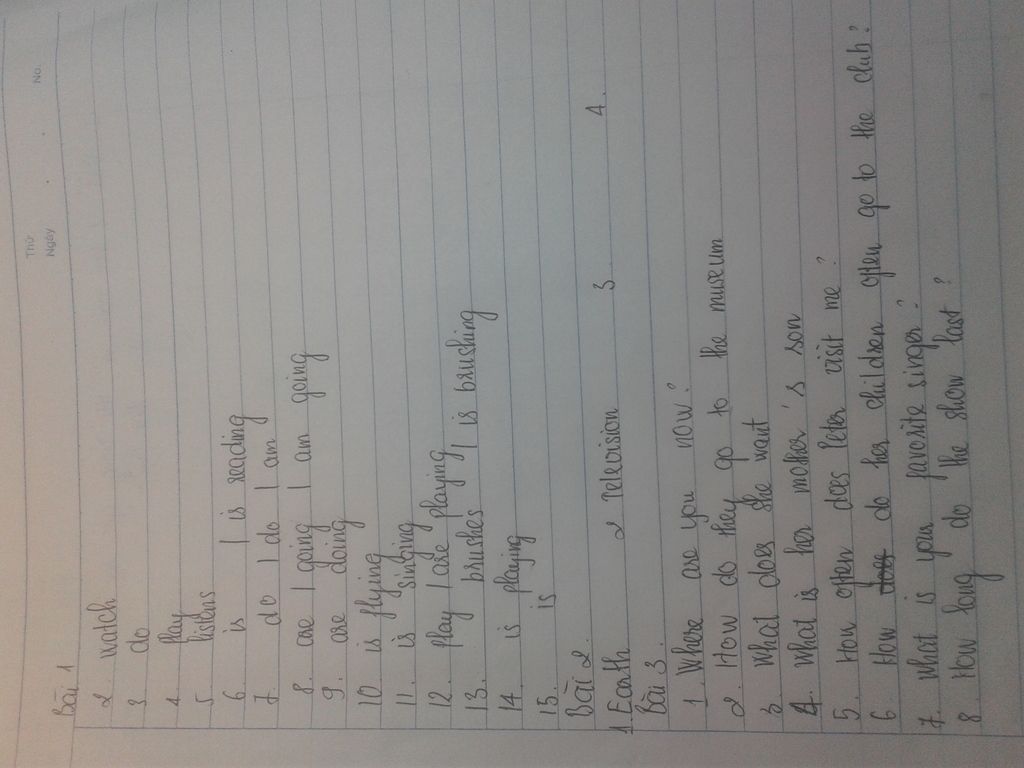 Thứ
Ngày
No.
Bài 1
2. watch
3. do
4. play
5 listens
6. is / is reading
7. do / do / am
8. are / going / am going
9. are doing
10. is flying
11. is singing
12. play / are playing
13. brushes / is brushing
14. is playing
15. is
Bài 2.
1. Earth 2 television 3 4.
Bài 3.
1. Where are you now?
2. How do they go to the museum
3 What does she want
4. What is her mother's son
5. How often does Peter visit me?
6. How do her children often go to the club?
7. What is your favorite singer?
8. How long do the show last?